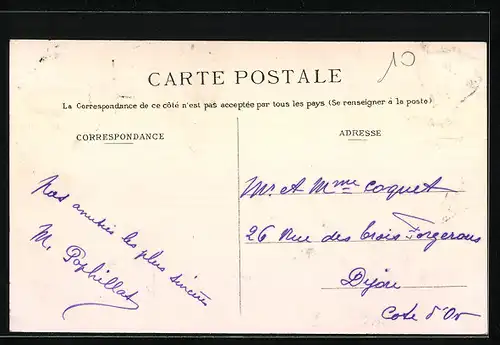 10
CARTE POSTALE
La Correspondance de ce côté n'est pas acceptée par tous les pays (Se renseigner à la poste)
CORRESPONDANCE
ADRESSE
Nos amitiés les plus sincères
M.
Mr et Mme Coquet
26 Rue des trois Forgerons
Dijon
Cote d'Or